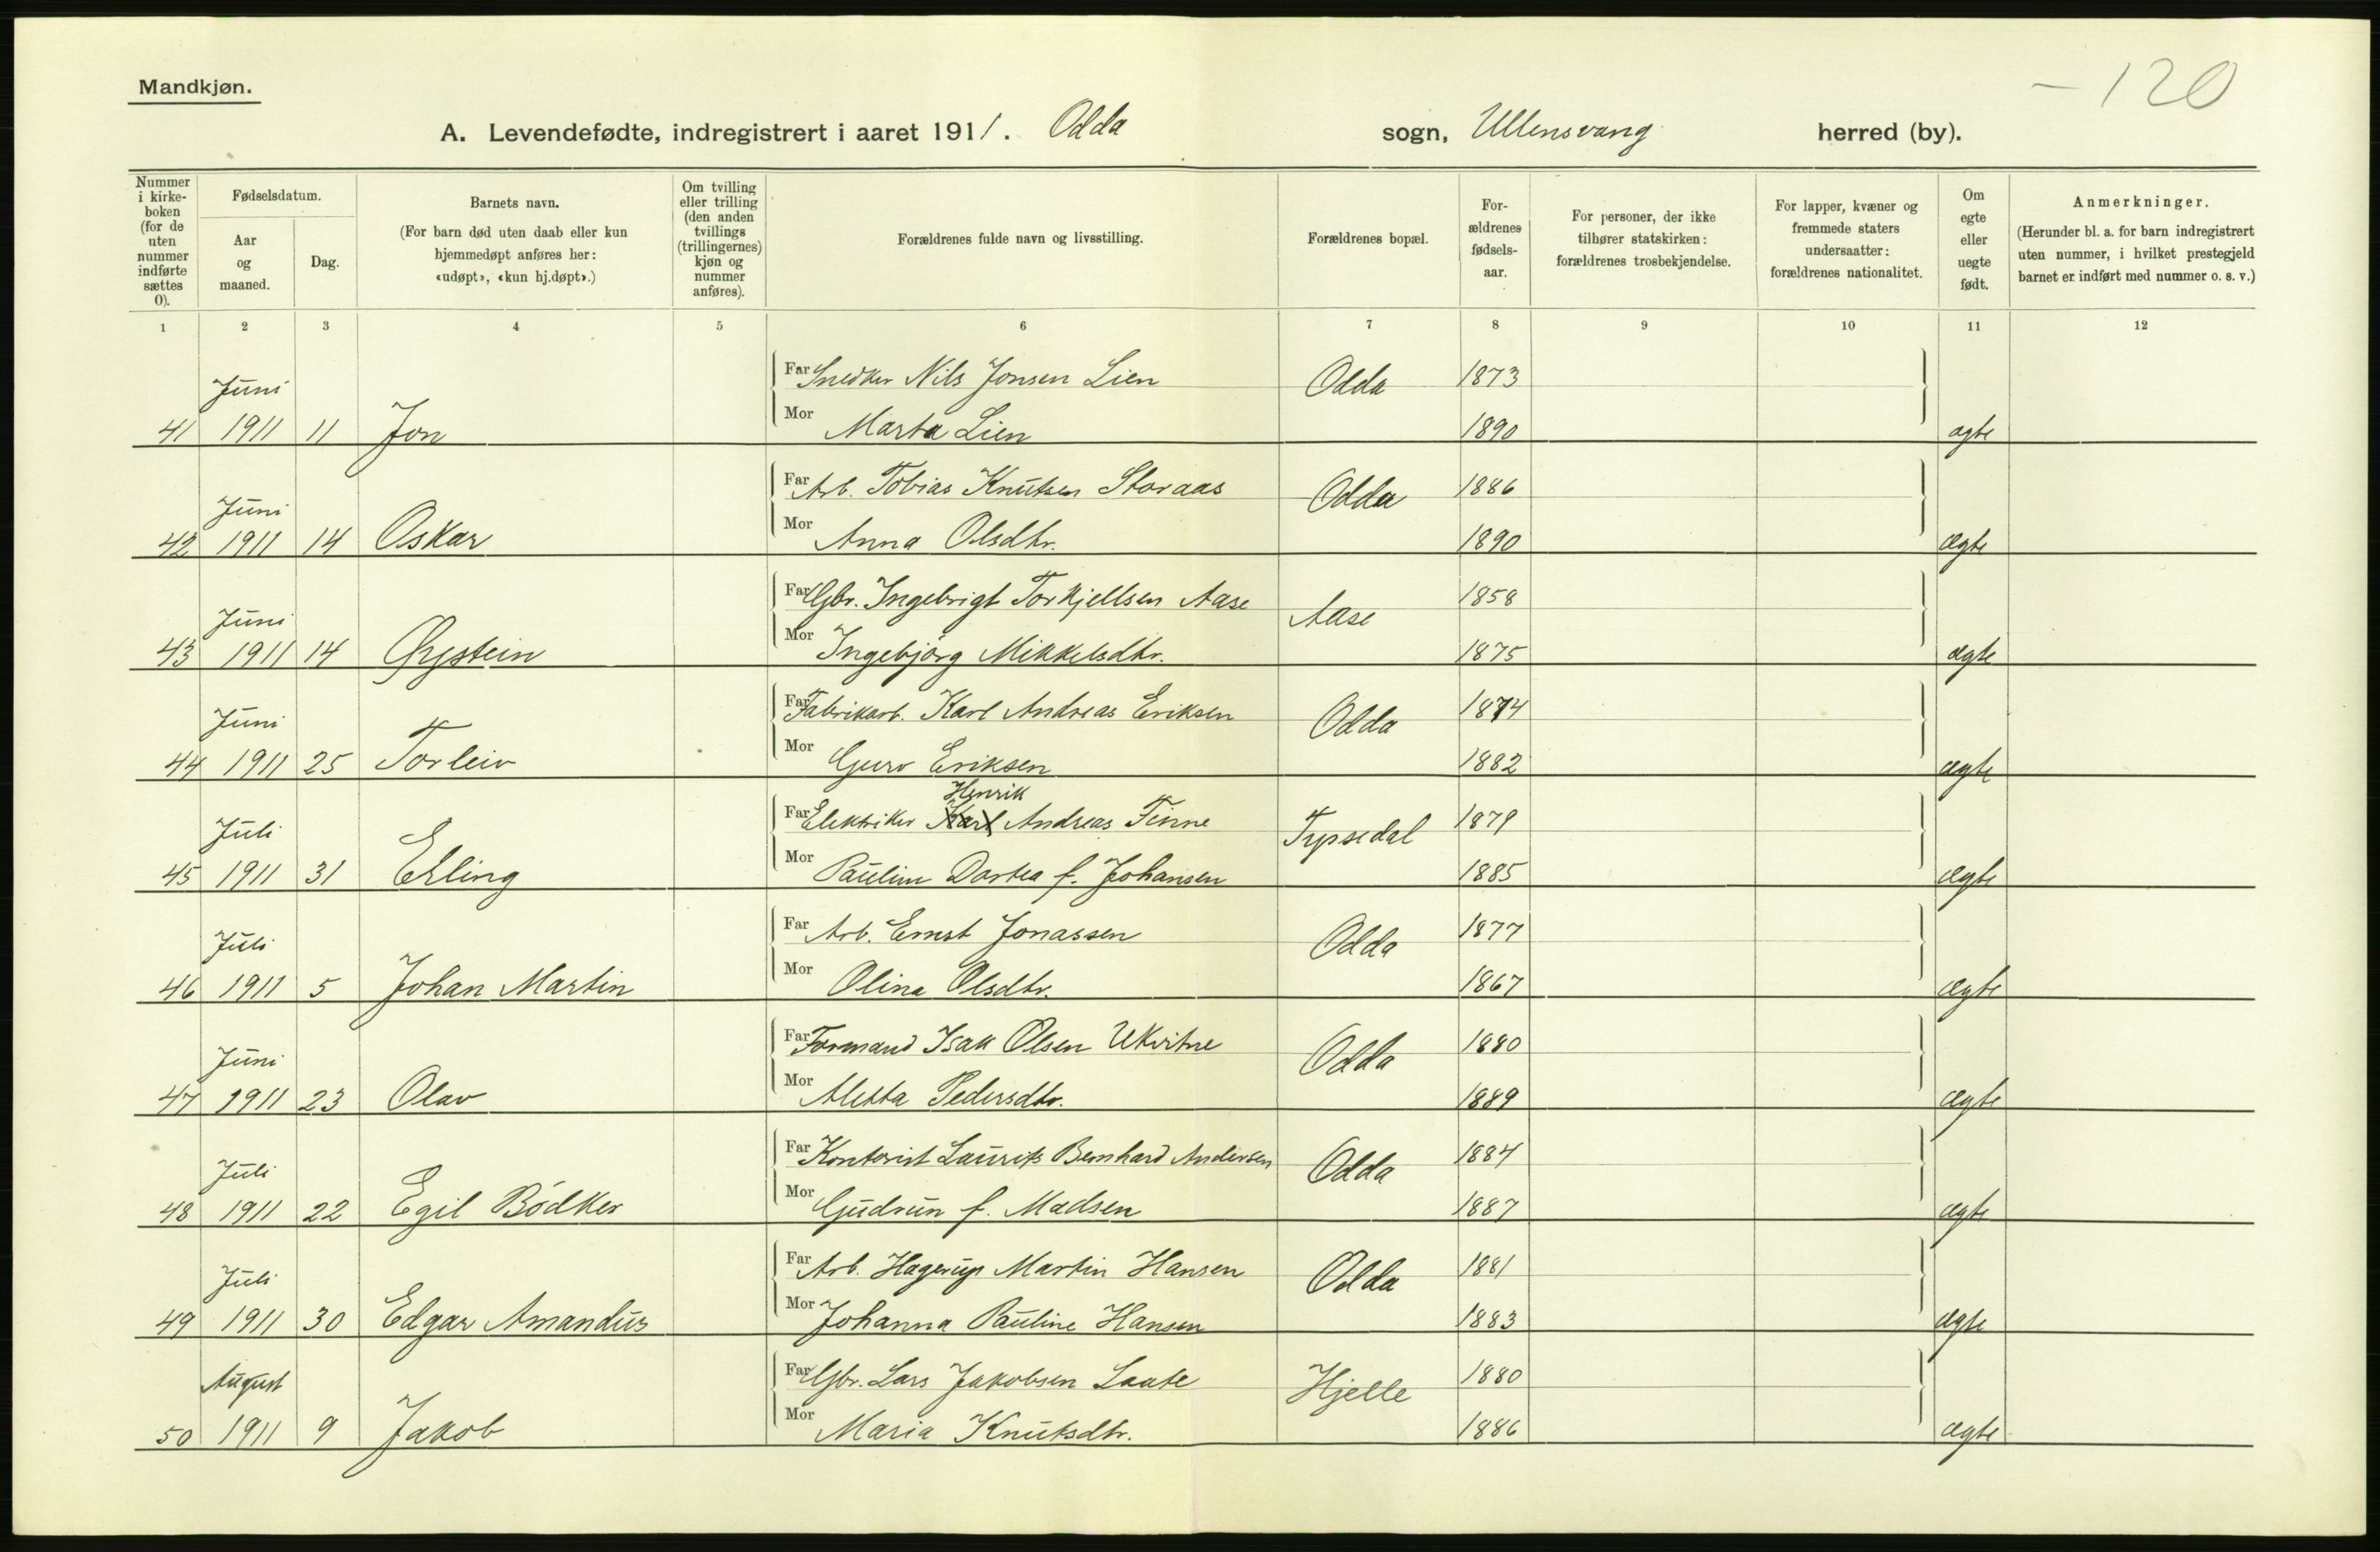 Mandkjøn.
-120
A. Levendefødte, indregistrert i aaret 1911. Odda sogn, Ullensvang herred (by).
Nummer i kirke-boken (for de uten nummer indførte sættes 0).
Fødselsdatum.
Aar og maaned.
Dag.
Barnets navn.
(For barn død uten daab eller kun hjemmedøpt anføres her: «udøpt», «kun hj.døpt».)
Om tvilling eller trilling (den anden tvillings (trillingernes) kjøn og nummer anføres).
Forældrenes fulde navn og livsstilling.
Forældrenes bopæl.
For-ældrenes fødsels-aar.
For personer, der ikke tilhører statskirken: forældrenes trosbekjendelse.
For lapper, kvæner og fremmede staters undersaatter: forældrenes nationalitet.
Om egte eller uegte født.
Anmerkninger.
(Herunder bl. a. for barn indregistrert uten nummer, i hvilket prestegjeld barnet er indført med nummer o. s. v.)
1 2 3 4 5 6 7 8 9 10 11 12
Juni Far Snedker Nils Jonsen Lien Odda 1873
41 1911 11 Jon Mor Marta Lien 1890 ægte
Juni Far Arb. Tobias Knutsen Storaas Odda 1886
42 1911 14 Oskar Mor Anna Olsdtr. 1890 ægte
Juni Far Gbr. Ingebrigt Torkjellsen Aase Aase 1858
43 1911 14 Øystein Mor Ingebjørg Mikkelsdtr. 1875 ægte
Juni Far Fabrikarb. Karl Andreas Eriksen Odda 1874
44 1911 25 Torleiv Mor Guro Eriksen 1882 ægte
Henrik
Juli Far Elektriker Karl Andreas Finne Tyssedal 1879
45 1911 31 Erling Mor Pauline Dortea f. Johansen 1885 ægte
Juli Far Arb. Ernst Jonassen Odda 1877
46 1911 5 Johan Martin Mor Olina Olsdtr. 1867 ægte
Juni Far Formand Isak Olsen Ukvitne Odda 1880
47 1911 23 Olav Mor Aletta Pedersdtr. 1889 ægte
Juli Far Kontorist Laurits Bernhard Andersen Odda 1884
48 1911 22 Egil Bödker Mor Gudrun f. Madsen 1887 ægte
Juli Far Arb. Hagerup Martin Hansen Odda 1881
49 1911 30 Edgar Amandus Mor Johanna Pauline Hansen 1883 ægte
August Far Gbr. Lars Jakobsen Laate Hjelle 1880
50 1911 9 Jakob Mor Maria Knutsdtr. 1886 ægte